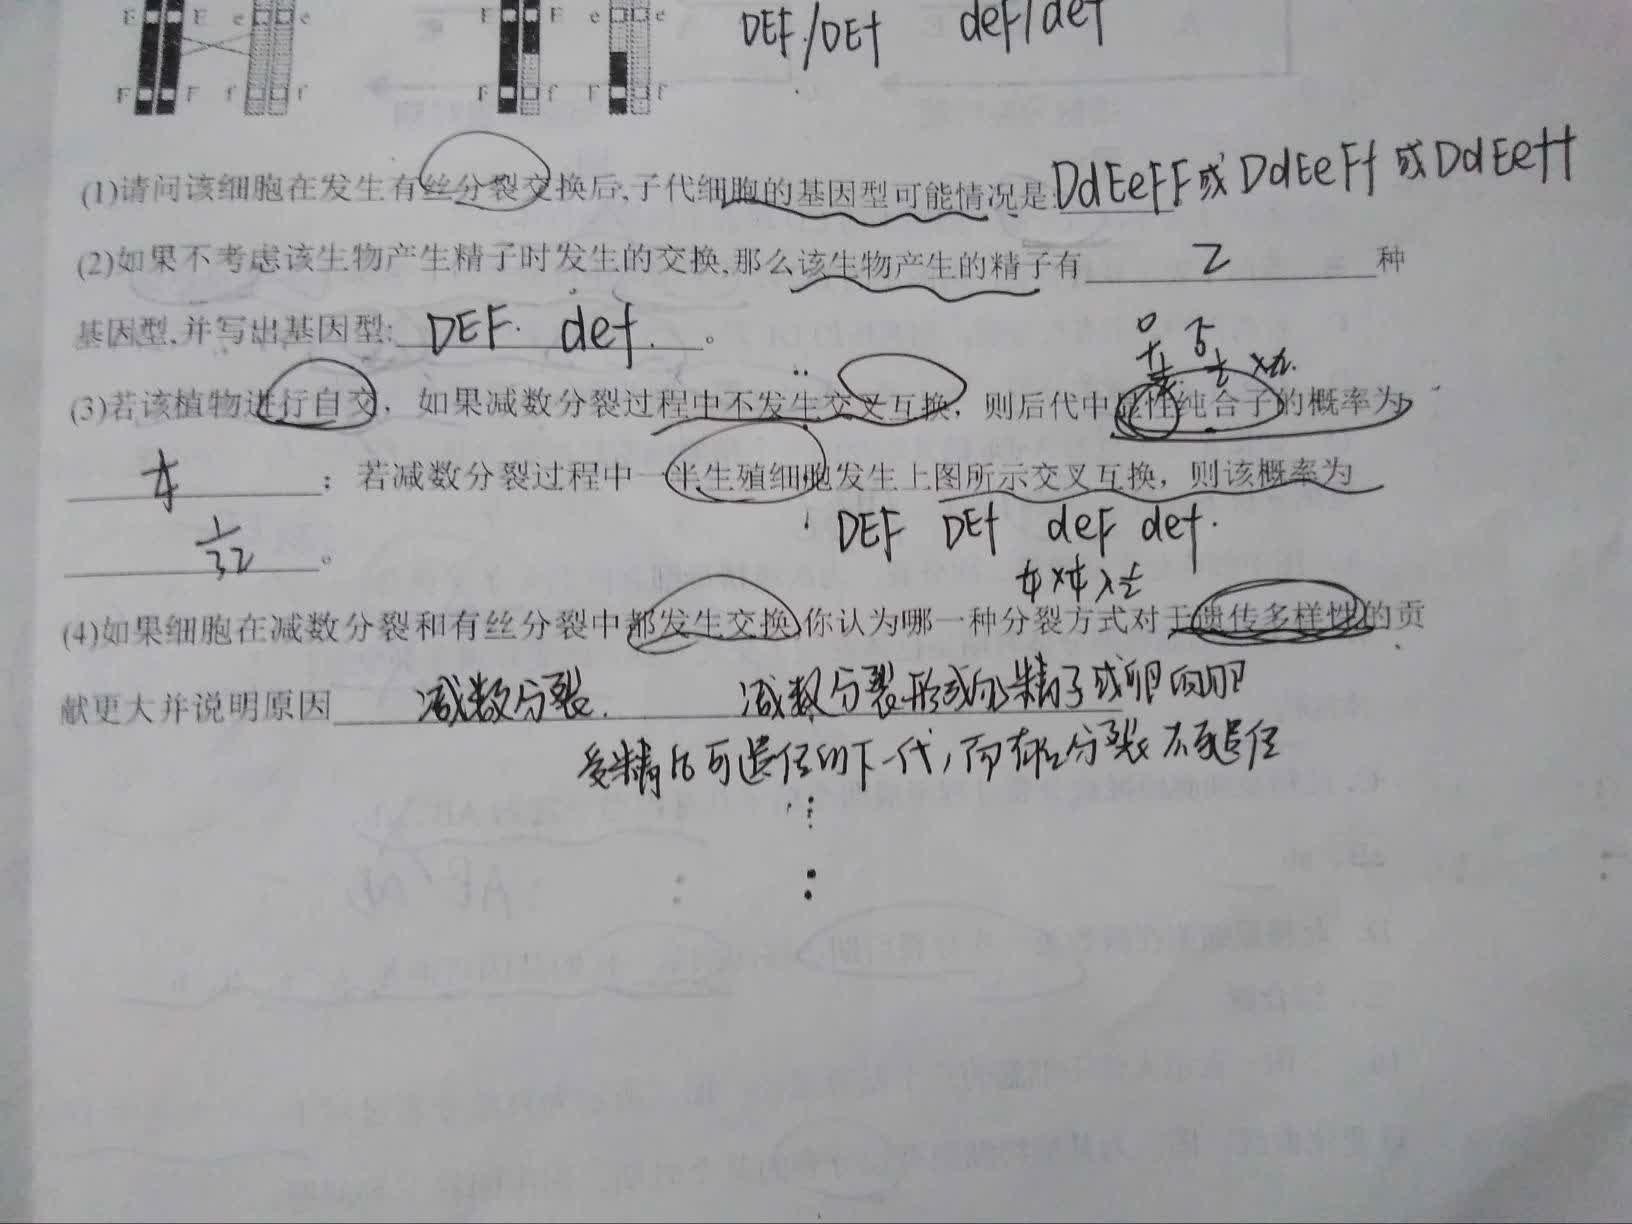 E E e e E E e e DEF/DEf deF/def
F F f f F f F f
(1)请问该细胞在发生有丝分裂交换后,子代细胞的基因型可能情况是:DdEeFF或DdEeFf或DdEeff
(2)如果不考虑该生物产生精子时发生的交换,那么该生物产生的精子有 2 种
基因型,并写出基因型: DEF. def. 。
(3)若该植物进行自交，如果减数分裂过程中不发生交叉互换，则后代中显性纯合子的概率为
1/4 ；若减数分裂过程中一半生殖细胞发生上图所示交叉互换，则该概率为
1/32 。
DEF DEf deF def.
1/4×1/4×1/2
(4)如果细胞在减数分裂和有丝分裂中都发生交换,你认为哪一种分裂方式对于遗传多样性的贡
献更大并说明原因 减数分裂. 减数分裂形成的精子或卵细胞
受精后可遗传的下一代，而有丝分裂不可遗传